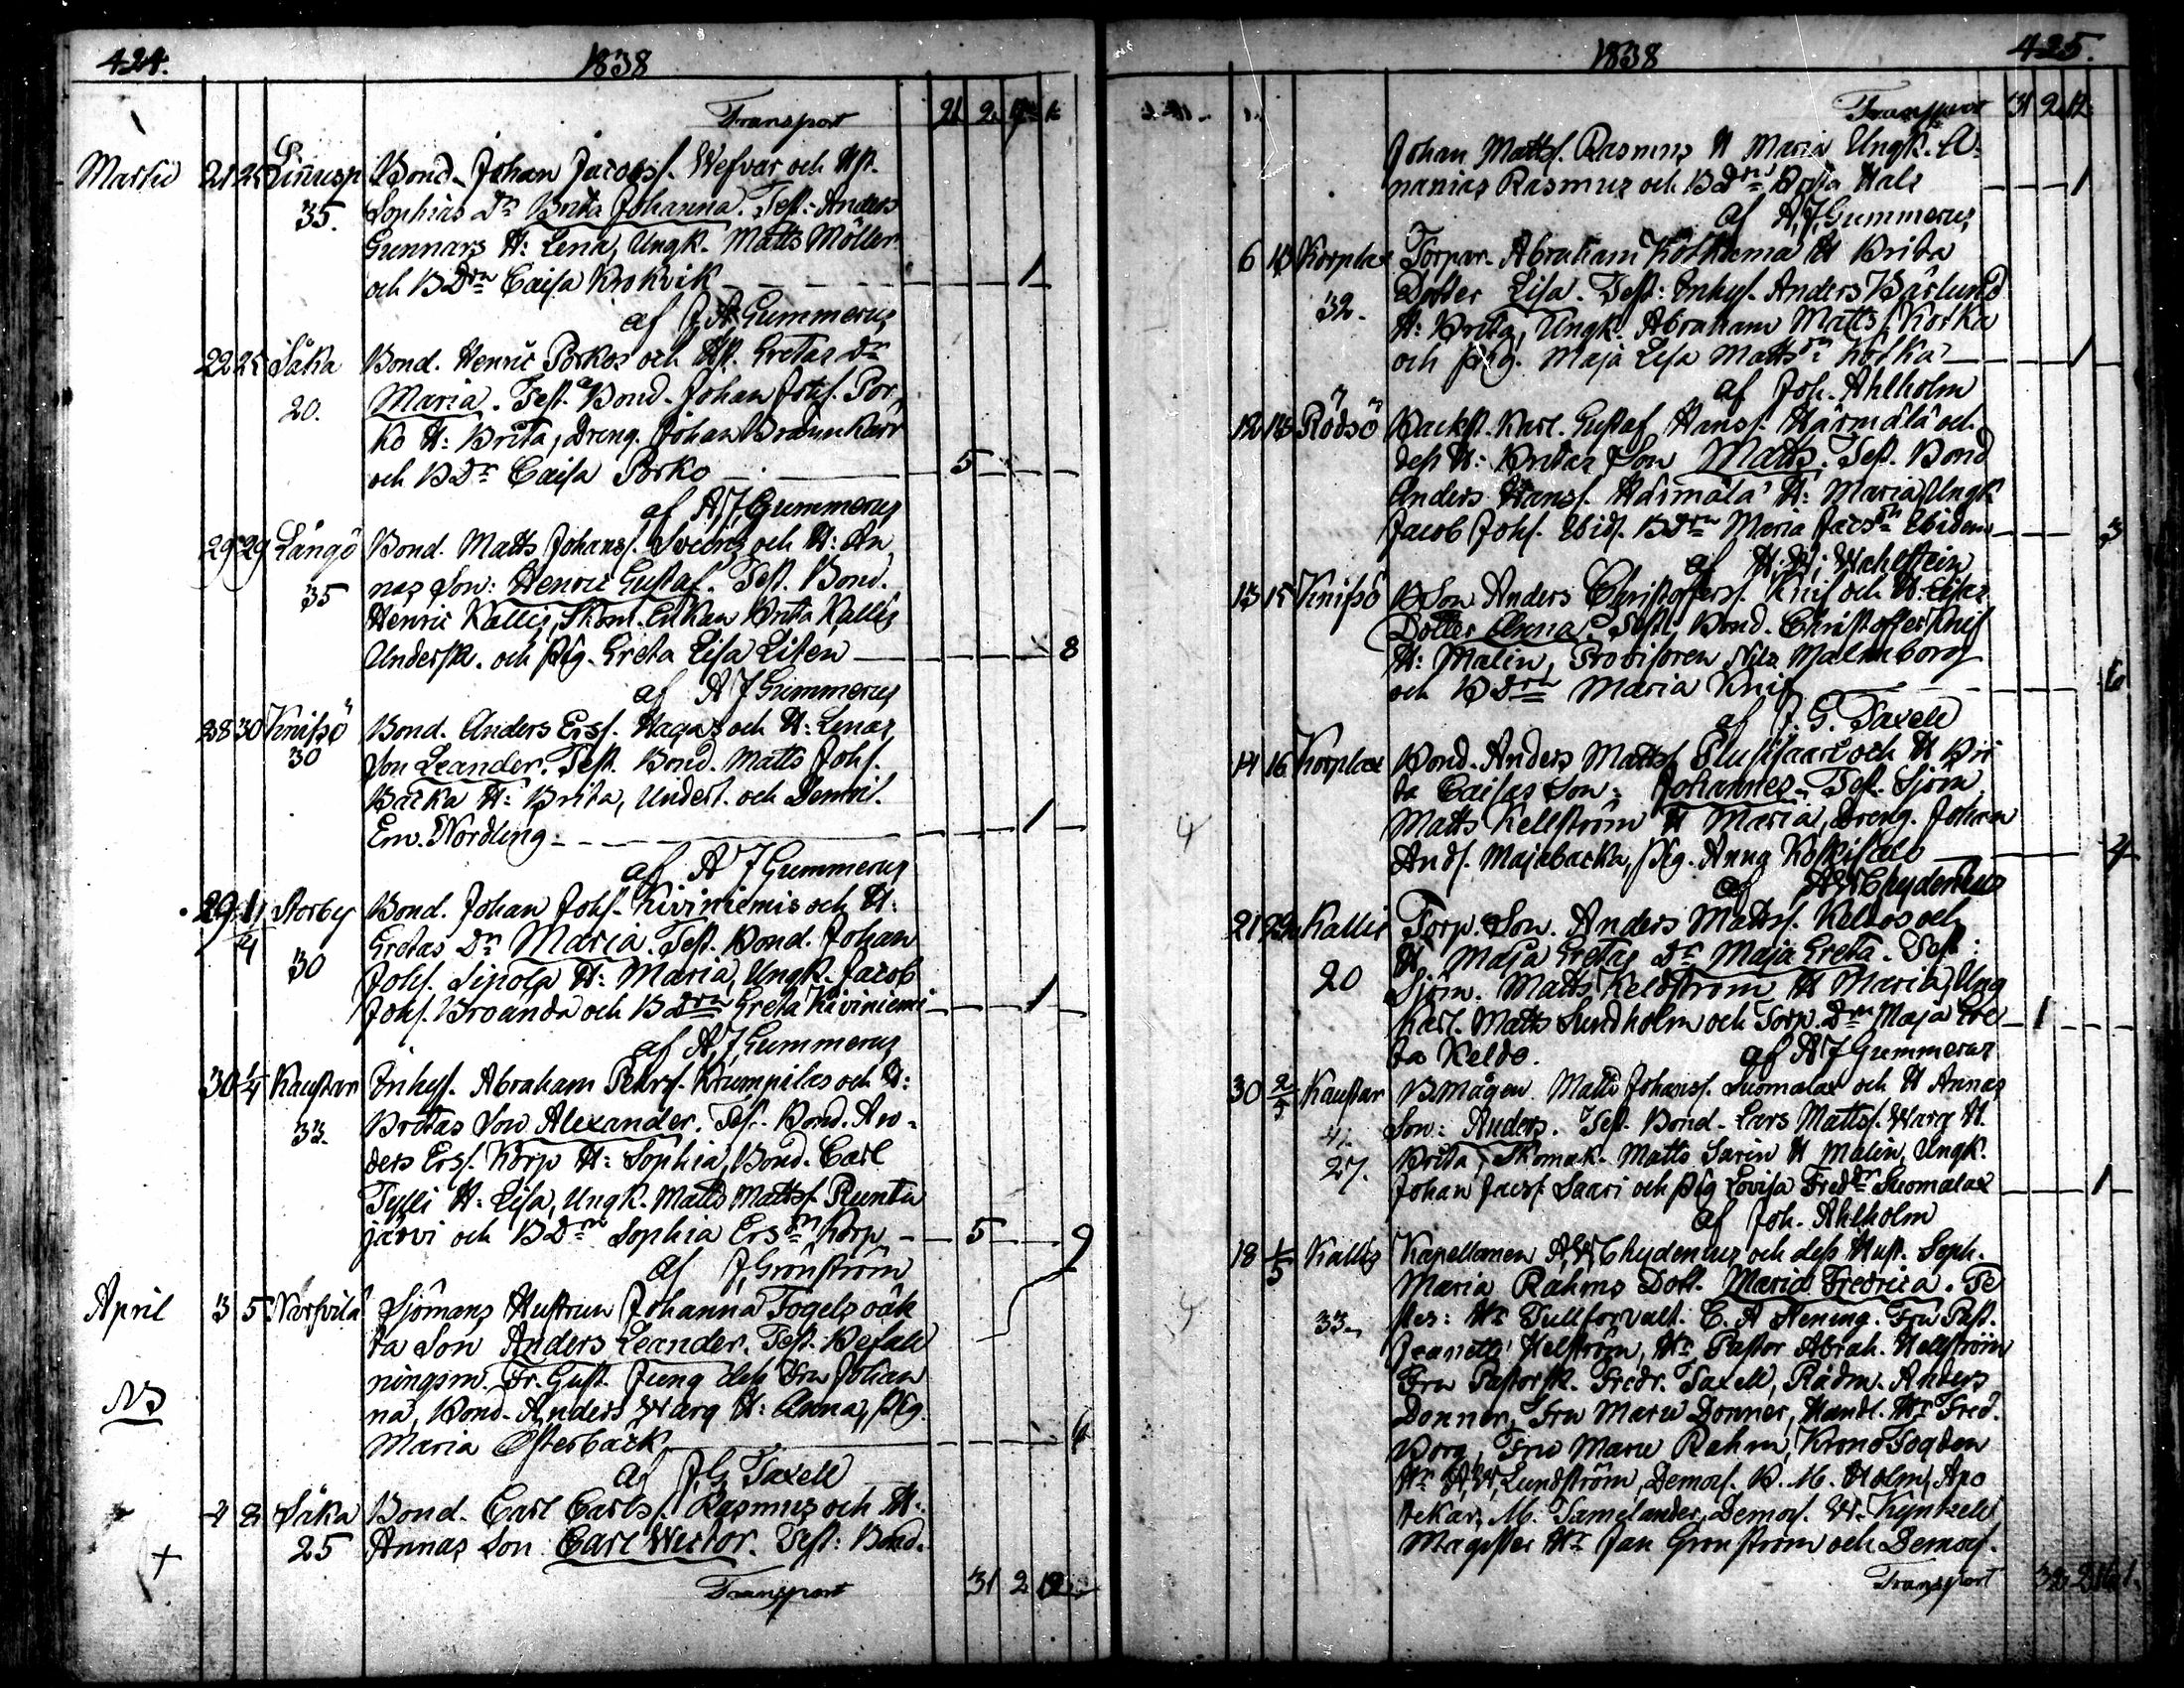 424.
1838
Transport 21 2 12
Martii 21 25 Linusp Bond. Johan Jacobss. Wefvar och Hst.
35. Sophias Dr Brita Johanna. Test: Anders
Gunnars H: Lena, Ungk. Matts Möller
och BDrn Caisa Krokvik 1
af J. A. Gummerus
22 25 Såka Bond. Henric Porkos och Hst. Gretas Dr
20. Maria. Test. Bond. Johan Johs. Por
ko H: Brita, Dreng. Johan Brännkärr
och BDr Caisa Porko 5
af A J Gummerus
29 29 Långö Bond. Matts Johanss. Sveins och H: An
35 nas Son: Henric Gustaf. Test. Bond.
Henric Kallis, Skom. Enkan Brita Kallis
Undersk. och Pig. Greta Lisa Liten 8
af A J Gummerus
28 30 Knifsö Bond. Anders Erss. Hagas och H: Lenas
30 Son Leander. Test. Bond. Matts Johs.
Backa H: Brita, Underl. och Demoil.
Em. Nordling 1
af A J Gummerus
29 1/4 Storby Bond. Johan Johs. Kiviniemis och H:
30 Gretas Dr Maria. Test. Bond. Johan
Johs. Sipola H: Maria, Ungk. Jacob
Johs. Broanda och BDrn Greta Kiviniemi 1
af A. J. Gummerus
30 1/4 Kaustar Inhys. Abraham Pehrs. Krumpilas och H:
33. Britas Son Alexander. Test. Bond. An
ders Erss. Korp H: Sophia, Bond. Carl
Tylli H: Lisa, Ungk. Matts Mattss. Runtu
järvi och BDrn Sophia Ersdn Korp 5 9
af J. Gronström
April 3 5 Narfvilä Sjömans Hustrun Johanna Fogels oäk
ta Son Anders Leander. Test. Befall
ningsm. Fr. Gust. Jung dess Fru Johan
NB na, Bond. Anders Warg H: Anna, Pig.
Maria Österback 6
af J. G. Taxell
4 8 Såka Bond. Carl Carlss. Rasmus och H:
25 Annas Son Carl Wictor. Test: Bond.
Transport 31 2 12
425.
1838
Transport 31 2 12
Johan Mattss. Rasmus H Maria Ungk. A
nanias Rasmus och BDrn Brita Hals 1
af A. J. Gummerus
6 13 Korplax Torpar. Abraham Kotkama H Brita
32. Dotter Lisa. Test: Inhys. Anders Bärlund
H: Brita, Ungk. Abraham Matts. Kotka
och Pig. Maja Lisa Mattsdn Kotka 1
af Joh. Ahlholm
12 13 Rödsö Backst. Karl. Gustaf Hanss. Härmälä och
dess H: Britas Son Matts. Test. Bond
Anders Hanss. Härmälä H: Maria, Ungk
Jacob Johs. Ibid. BDrn Maria Jacsdn Ibidem 3
af H. H. Wahlstein
13 15 Knifsö BSon Anders Christoffers. Knif och H: Lisas
Dotter Anna. Test. Bond. Christoffer Knif
H: Malin, Provisoren Nils Malmborg
och BDrn Maria Knif 6
af J. G. Taxell
14 16 Korplax Bond. Anders Mattss. Plusisaari och H Bri
ta Caisas Son: Johannes. Test. Sjöm
Matts Kellström H Maria, Dreng. Johan
Ands. Majabacka, Pig. Anna Koskisalo 4
af A H Chydenius
21 22 Kallis Torp. Son. Anders Mattss. Keldos och
20 H. Maja Gretas Dr Maja Greta. Test:
Sjöm. Matts Keldström H Maria, Ung
Karl. Matts Sundholm och Torp. Drn Maja Gre 1
ta Keldo. af A J Gummerus
30 2/5 Kaustar BMågen Matts Johanss. Suomalax och H Annas
41. Son: Anders. Test. Bond. Lars Mattss. Warg H.
27. Brita, Skomak. Matts Sarin H Malin, Ungk.
Johan Jacss. Saari och Pig Lovisa Freddr Suomalax 1
af Joh. Ahlholm
18 1/5 Kallis Kapellanen A H Chydenius och dess Hust. Soph.
Maria Rahms Dott. Maria Fredrica. Te
33. stes: Hr Tullförvalt. C. A Hening. Fru Past.
Jeanette Helström, Hr Pastor Abrah. Hellström
Fru Pastorsk. Fredr. Taxell, Rådm. Anders
Donner, Fru Marie Donner, Handl. Hr Fred.
Borg, Fru Marie Rahm, KronoFogden
Hr A. W. Lundström, Demois. B. M. Holm, Apo
tekar. M. Tamelander, Demois. W. Kyntzell
Magister Hr Jan Gronström och Demois.
Transport